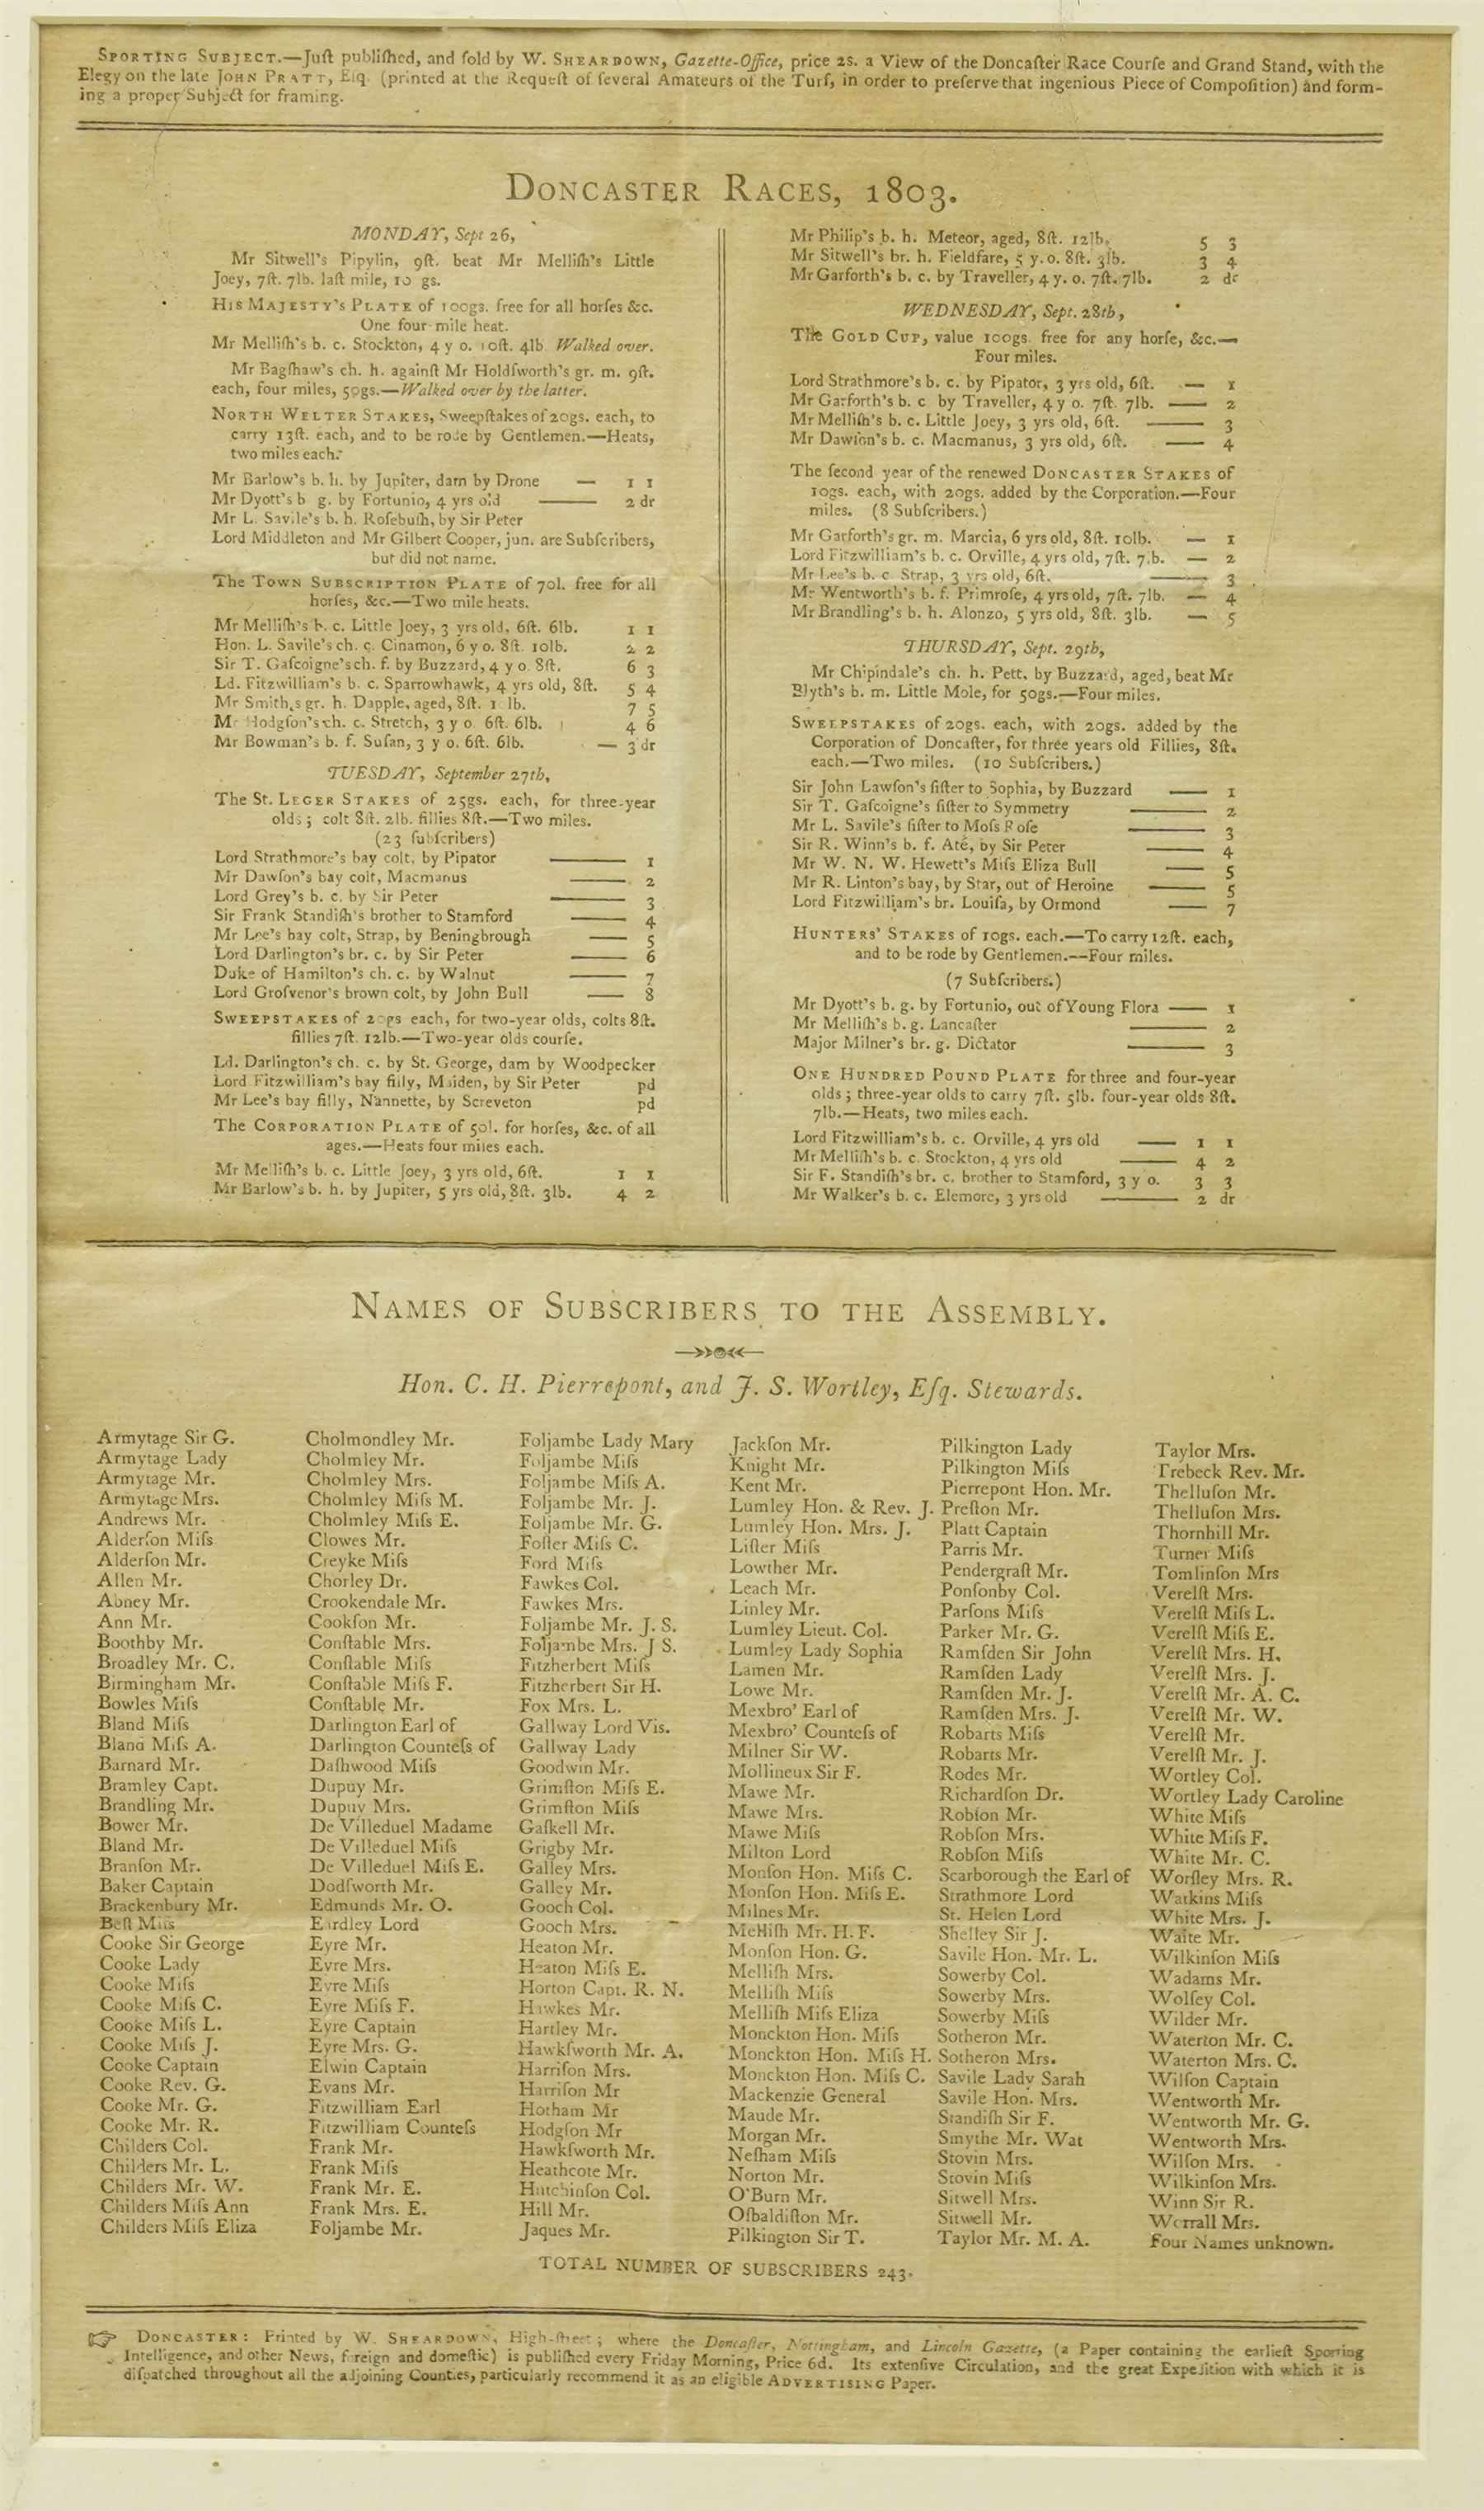 SPORTING SUBJECT.—Juſt publiſhed, and ſold by W. SHEARDOWN, Gazette-Office, price 2s. a View of the Doncaſter Race Courſe and Grand Stand, with the
Elegy on the late JOHN PRATT, Eſq. (printed at the Requeſt of ſeveral Amateurs of the Turf, in order to preſerve that ingenious Piece of Compoſition) and form-
ing a proper Subject for framing.
DONCASTER RACES, 1803.
MONDAY, Sept 26,
Mr Sitwell's Pipylin, 9ſt. beat Mr Melliſh's Little
Joey, 7ſt. 7lb. laſt mile, 10 gs.
HIS MAJESTY'S PLATE of 100gs. free for all horſes &c.
One four mile heat.
Mr Melliſh's b. c. Stockton, 4 y o. 10ſt. 4lb Walked over.
Mr Bagſhaw's ch. h. againſt Mr Holdſworth's gr. m. 9ſt.
each, four miles, 50gs.—Walked over by the latter.
NORTH WELTER STAKES, Sweepſtakes of 20gs. each, to
carry 13ſt. each, and to be rode by Gentlemen.—Heats,
two miles each.
Mr Barlow's b. h. by Jupiter, dam by Drone — 1 1
Mr Dyott's b g. by Fortunio, 4 yrs old —— 2 dr
Mr L. Savile's b. h. Roſebuſh, by Sir Peter
Lord Middleton and Mr Gilbert Cooper, jun. are Subſcribers,
but did not name.
The TOWN SUBSCRIPTION PLATE of 70l. free for all
horſes, &c.—Two mile heats.
Mr Melliſh's b. c. Little Joey, 3 yrs old, 6ſt. 6lb. 1 1
Hon. L. Savile's ch. c. Cinamon, 6 y o. 8ſt. 10lb. 2 2
Sir T. Gaſcoigne's ch. f. by Buzzard, 4 y o. 8ſt. 6 3
Ld. Fitzwilliam's b. c. Sparrowhawk, 4 yrs old, 8ſt. 5 4
Mr Smith,s gr. h. Dapple, aged, 8ſt. lb. 7 5
Mr Hodgſon's ch. c. Stretch, 3 y o. 6ſt. 6lb. 4 6
Mr Bowman's b. f. Suſan, 3 y o. 6ſt. 6lb. — 3 dr
TUESDAY, September 27th,
The St. LEGER STAKES of 25gs. each, for three-year
olds; colt 8ſt. 2lb. fillies 8ſt.—Two miles.
(23 ſubſcribers)
Lord Strathmore's bay colt, by Pipator —— 1
Mr Dawſon's bay colt, Macmanus —— 2
Lord Grey's b. c. by Sir Peter —— 3
Sir Frank Standiſh's brother to Stamford —— 4
Mr Lee's bay colt, Strap, by Beningbrough —— 5
Lord Darlington's br. c. by Sir Peter —— 6
Duke of Hamilton's ch. c. by Walnut —— 7
Lord Groſvenor's brown colt, by John Bull —— 8
SWEEPSTAKES of 20gs each, for two-year olds, colts 8ſt.
fillies 7ſt. 12lb.—Two-year olds courſe.
Ld. Darlington's ch. c. by St. George, dam by Woodpecker
Lord Fitzwilliam's bay filly, Maiden, by Sir Peter pd
Mr Lee's bay filly, Nannette, by Screveton pd
The CORPORATION PLATE of 50l. for horſes, &c. of all
ages.—Heats four miles each.
Mr Melliſh's b. c. Little Joey, 3 yrs old, 6ſt. 1 1
Mr Barlow's b. h. by Jupiter, 5 yrs old, 8ſt. 3lb. 4 2
Mr Philip's b. h. Meteor, aged, 8ſt. 12lb. 5 3
Mr Sitwell's br. h. Fieldfare, 5 y. o. 8ſt. 3lb. 3 4
Mr Garforth's b. c. by Traveller, 4 y. o. 7ſt. 7lb. 2 dr
WEDNESDAY, Sept. 28th,
The GOLD CUP, value 100gs. free for any horſe, &c.—
Four miles.
Lord Strathmore's b. c. by Pipator, 3 yrs old, 6ſt. — 1
Mr Garforth's b. c by Traveller, 4 y o. 7ſt. 7lb. —— 2
Mr Melliſh's b. c. Little Joey, 3 yrs old, 6ſt. —— 3
Mr Dawſon's b. c. Macmanus, 3 yrs old, 6ſt. —— 4
The ſecond year of the renewed DONCASTER STAKES of
10gs. each, with 20gs. added by the Corporation.—Four
miles. (8 Subſcribers.)
Mr Garforth's gr. m. Marcia, 6 yrs old, 8ſt. 10lb. — 1
Lord Fitzwilliam's b. c. Orville, 4 yrs old, 7ſt. 7lb. — 2
Mr Lee's b. c. Strap, 3 yrs old, 6ſt. —— 3
Mr Wentworth's b. f. Primroſe, 4 yrs old, 7ſt. 7lb. — 4
Mr Brandling's b. h. Alonzo, 5 yrs old, 8ſt. 3lb. — 5
THURSDAY, Sept. 29th,
Mr Chipindale's ch. h. Pett, by Buzzard, aged, beat Mr
Blyth's b. m. Little Mole, for 50gs.—Four miles.
SWEEPSTAKES of 20gs. each, with 20gs. added by the
Corporation of Doncaſter, for three years old Fillies, 8ſt.
each.—Two miles. (10 Subſcribers.)
Sir John Lawſon's ſiſter to Sophia, by Buzzard —— 1
Sir T. Gaſcoigne's ſiſter to Symmetry —— 2
Mr L. Savile's ſiſter to Moſs Roſe —— 3
Sir R. Winn's b. f. Até, by Sir Peter —— 4
Mr W. N. W. Hewett's Miſs Eliza Bull —— 5
Mr R. Linton's bay, by Star, out of Heroine —— 5
Lord Fitzwilliam's br. Louiſa, by Ormond —— 7
HUNTERS' STAKES of 10gs. each.—To carry 12ſt. each,
and to be rode by Gentlemen.—Four miles.
(7 Subſcribers.)
Mr Dyott's b. g. by Fortunio, out of Young Flora —— 1
Mr Melliſh's b. g. Lancaſter —— 2
Major Milner's br. g. Dictator —— 3
ONE HUNDRED POUND PLATE for three and four-year
olds; three-year olds to carry 7ſt. 5lb. four-year olds 8ſt.
7lb.—Heats, two miles each.
Lord Fitzwilliam's b. c. Orville, 4 yrs old —— 1 1
Mr Melliſh's b. c. Stockton, 4 yrs old —— 4 2
Sir F. Standiſh's br. c. brother to Stamford, 3 y o. 3 3
Mr Walker's b. c. Elemore, 3 yrs old —— 2 dr
NAMES OF SUBSCRIBERS TO THE ASSEMBLY.
Hon. C. H. Pierrepont, and J. S. Wortley, Eſq. Stewards.
Armytage Sir G.
Armytage Lady
Armytage Mr.
Armytage Mrs.
Andrews Mr.
Alderſon Miſs
Alderſon Mr.
Allen Mr.
Abney Mr.
Ann Mr.
Boothby Mr.
Broadley Mr. C.
Birmingham Mr.
Bowles Miſs
Bland Miſs
Bland Miſs A.
Barnard Mr.
Bramley Capt.
Brandling Mr.
Bower Mr.
Bland Mr.
Branſon Mr.
Baker Captain
Brackenbury Mr.
Beſt Miſs
Cooke Sir George
Cooke Lady
Cooke Miſs
Cooke Miſs C.
Cooke Miſs L.
Cooke Miſs J.
Cooke Captain
Cooke Rev. G.
Cooke Mr. G.
Cooke Mr. R.
Childers Col.
Childers Mr. L.
Childers Mr. W.
Childers Miſs Ann
Childers Miſs Eliza
Cholmondley Mr.
Cholmley Mr.
Cholmley Mrs.
Cholmley Miſs M.
Cholmley Miſs E.
Clowes Mr.
Creyke Miſs
Chorley Dr.
Crookendale Mr.
Cookſon Mr.
Conſtable Mrs.
Conſtable Miſs
Conſtable Miſs F.
Conſtable Mr.
Darlington Earl of
Darlington Counteſs of
Daſhwood Miſs
Dupuy Mr.
Dupuy Mrs.
De Villeduel Madame
De Villeduel Miſs
De Villeduel Miſs E.
Dodſworth Mr.
Edmunds Mr. O.
Eardley Lord
Eyre Mr.
Eyre Mrs.
Eyre Miſs
Eyre Miſs F.
Eyre Captain
Eyre Mrs. G.
Elwin Captain
Evans Mr.
Fitzwilliam Earl
Fitzwilliam Counteſs
Frank Mr.
Frank Miſs
Frank Mr. E.
Frank Mrs. E.
Foljambe Mr.
Foljambe Lady Mary
Foljambe Miſs
Foljambe Miſs A.
Foljambe Mr. J.
Foljambe Mr. G.
Foſter Miſs C.
Ford Miſs
Fawkes Col.
Fawkes Mrs.
Foljambe Mr. J. S.
Foljambe Mrs. J S.
Fitzherbert Miſs
Fitzherbert Sir H.
Fox Mrs. L.
Gallway Lord Vis.
Gallway Lady
Goodwin Mr.
Grimſton Miſs E.
Grimſton Miſs
Gaſkell Mr.
Grigby Mr.
Galley Mrs.
Galley Mr.
Gooch Col.
Gooch Mrs.
Heaton Mr.
Heaton Miſs E.
Horton Capt. R. N.
Hawkes Mr.
Hartley Mr.
Hawkſworth Mr. A.
Harriſon Mrs.
Harriſon Mr
Hotham Mr
Hodgſon Mr
Hawkſworth Mr.
Heathcote Mr.
Hutchinſon Col.
Hill Mr.
Jaques Mr.
Jackſon Mr.
Knight Mr.
Kent Mr.
Lumley Hon. & Rev. J.
Lumley Hon. Mrs. J.
Liſter Miſs
Lowther Mr.
Leach Mr.
Linley Mr.
Lumley Lieut. Col.
Lumley Lady Sophia
Lamen Mr.
Lowe Mr.
Mexbro' Earl of
Mexbro' Counteſs of
Milner Sir W.
Mollineux Sir F.
Mawe Mr.
Mawe Mrs.
Mawe Miſs
Milton Lord
Monſon Hon. Miſs C.
Monſon Hon. Miſs E.
Milnes Mr.
Melliſh Mr. H. F.
Monſon Hon. G.
Melliſh Mrs.
Melliſh Miſs
Melliſh Miſs Eliza
Monckton Hon. Miſs
Monckton Hon. Miſs H.
Monckton Hon. Miſs C.
Mackenzie General
Maude Mr.
Morgan Mr.
Neſham Miſs
Norton Mr.
O'Burn Mr.
Oſbaldiſton Mr.
Pilkington Sir T.
Pilkington Lady
Pilkington Miſs
Pierrepont Hon. Mr.
Preſton Mr.
Platt Captain
Parris Mr.
Pendergraſt Mr.
Ponſonby Col.
Parſons Miſs
Parker Mr. G.
Ramſden Sir John
Ramſden Lady
Ramſden Mr. J.
Ramſden Mrs. J.
Robarts Miſs
Robarts Mr.
Rodes Mr.
Richardſon Dr.
Robſon Mr.
Robſon Mrs.
Robſon Miſs
Scarborough the Earl of
Strathmore Lord
St. Helen Lord
Shelley Sir J.
Savile Hon. Mr. L.
Sowerby Col.
Sowerby Mrs.
Sowerby Miſs
Sotheron Mr.
Sotheron Mrs.
Savile Lady Sarah
Savile Hon. Mrs.
Standiſh Sir F.
Smythe Mr. Wat
Stovin Mrs.
Stovin Miſs
Sitwell Mrs.
Sitwell Mr.
Taylor Mr. M. A.
Taylor Mrs.
Trebeck Rev. Mr.
Thelluſon Mr.
Thelluſon Mrs.
Thornhill Mr.
Turner Miſs
Tomlinſon Mrs
Verelſt Mrs.
Verelſt Miſs L.
Verelſt Miſs E.
Verelſt Mrs. H.
Verelſt Mrs. J.
Verelſt Mr. A. C.
Verelſt Mr. W.
Verelſt Mr.
Verelſt Mr. J.
Wortley Col.
Wortley Lady Caroline
White Miſs
White Miſs F.
White Mr. C.
Worſley Mrs. R.
Watkins Miſs
White Mrs. J.
Waite Mr.
Wilkinſon Miſs
Wadams Mr.
Wolſey Col.
Wilder Mr.
Waterton Mr. C.
Waterton Mrs. C.
Wilſon Captain
Wentworth Mr.
Wentworth Mr. G.
Wentworth Mrs.
Wilſon Mrs.
Wilkinſon Mrs.
Winn Sir R.
Worrall Mrs.
Four Names unknown.
TOTAL NUMBER OF SUBSCRIBERS 243.
☞ DONCASTER: Printed by W. SHEARDOWN, High-ſtreet; where the Doncaſter, Nottingham, and Lincoln Gazette, (a Paper containing the earlieſt Sporting
Intelligence, and other News, foreign and domeſtic) is publiſhed every Friday Morning, Price 6d. Its extenſive Circulation, and the great Expedition with which it is
diſpatched throughout all the adjoining Counties, particularly recommend it as an eligible ADVERTISING Paper.